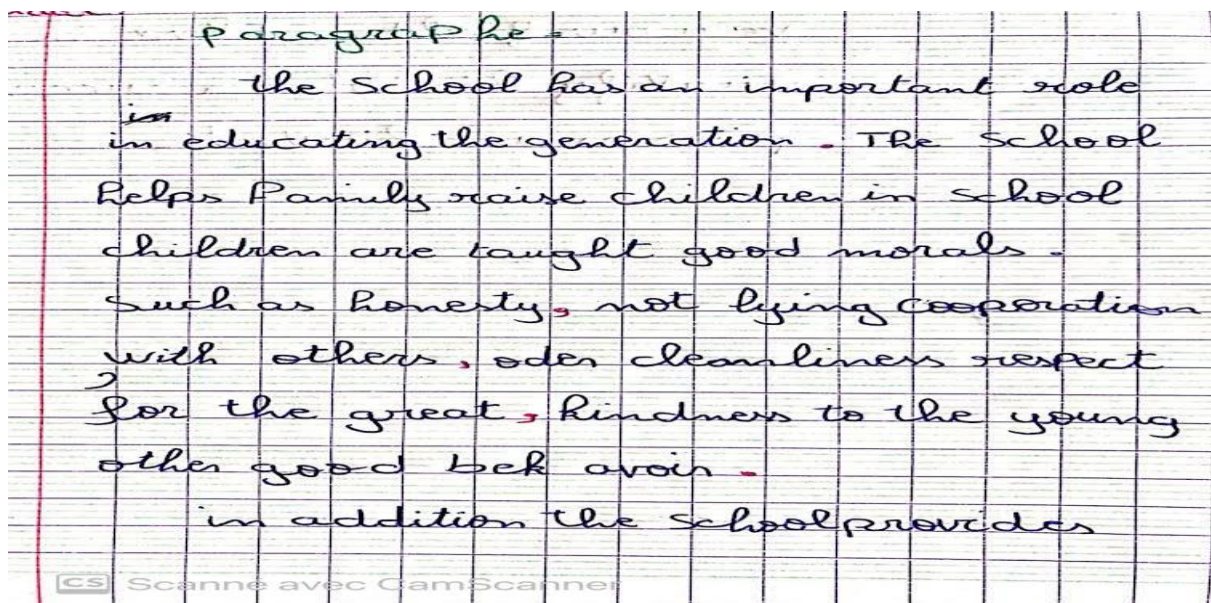 paragraphe.
the school has an important role
in
in educating the generation. The school
helps family raise children in school
children are taught good morals.
such as honesty, not lying cooperation
with others, oder cleanliness respect
for the great, kindness to the young
other good beh avoir.
in addition the school provides
CS Scanné avec CamScanner